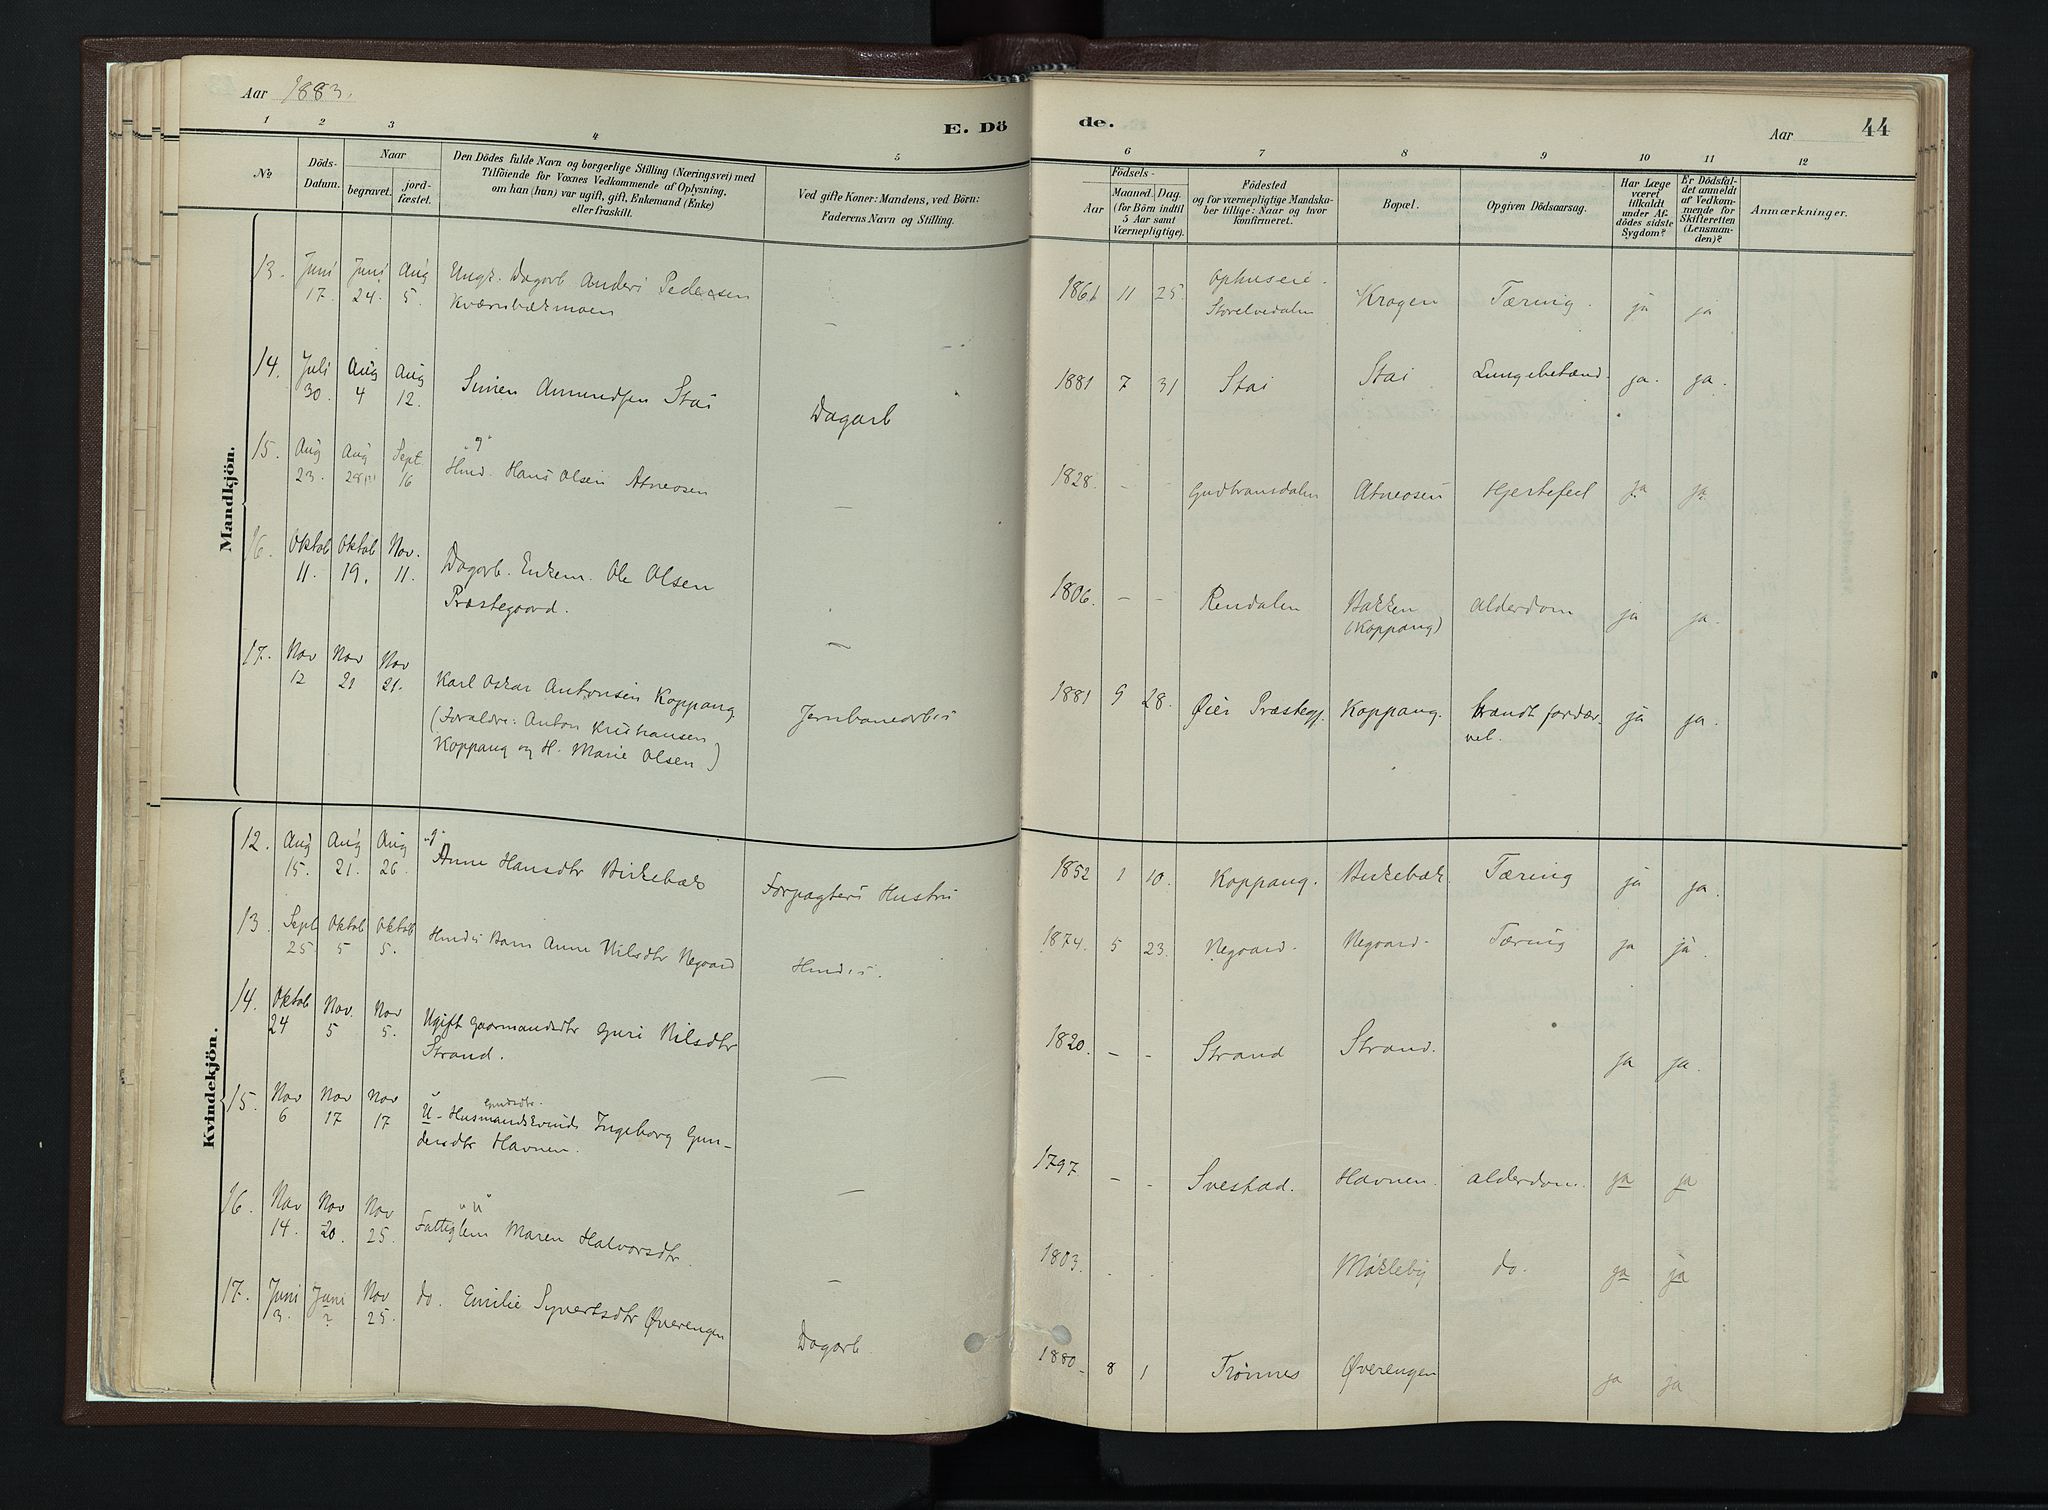 Aar 1883.
E. Dö
de.
Aar
44
1 2 3 4 5 6 7 8 9 10 11 12
No
Döds-
Datum.
Naar
begravet.
jord-
fæstet.
Den Dödes fulde Navn og borgerlige Stilling (Næringsvei) med
Tilföiende for Voxnes Vedkommende af Oplysning,
om han (hun) var ugift, gift, Enkemand (Enke)
eller fraskilt.
Ved gifte Koner: Mandens, ved Börn:
Faderens Navn og Stilling.
Födsels-
Aar
Maaned.
Dag.
(for Börn indtil
5 Aar samt
Værnepligtige).
Födested
og for værnepligtige Mandska-
ber tillige: Naar og hvor
konfirmeret.
Bopæl.
Opgiven Dödsaarsag.
Har Læge
været
tilkaldt
under Af-
dödes sidste
Sygdom?
Er Dödsfal-
det anmeldt
af Vedkom-
mende for
Skifteretten
(Lensman-
den)?
Anmærkninger.
Mandkjön.
13. Juni 17. Juni 24. Aug 5. Ungk. Dagarb Anders Pedersen
Kværnbækmoen
— 1861 11 25. Ophuseie. Storelvedalen Krogen Tæring. ja ja
14. Juli 30. Aug 4 Aug 12. Simen Amundsen Stai
Dagarb 1881 7 31 Stai Stai Lungebetænd. ja. ja.
15. Aug 23. Aug 28 Sept 16 "g"
Hmd. Hans Olsen Atneosen
— 1828. - - Gudbransdalen Atneosen Hjertefeil ja ja
16. Oktob 11. Oktob 19. Nov. 11. Dagarb. Enkem. Ole Olsen
Præstegaard.
— 1806. - - Rendalen Bakken (Koppang) Alderdom ja ja.
17. Nov 12 Nov 21 Nov 21. Karl Oskar Antonsen Koppang
(Forældre: Anton Kristiansen
Koppang og H. Marie Olsen)
Jernbanearb 1881 9 28. Øier Præstegj. Koppang. brændt fordær-
vet. ja ja.
Kvindekjön.
12. Aug 15. Aug 21. Aug 26. "g"
Anne Hansdtr Birkebæk
Forpagters Hustru 1852 1 10. Koppang. Birkebæk. Tæring ja ja.
13. Sept 25 Oktob 5 Oktob 5. Hmds Barn Anne Nilsdtr Negaard
Hmds. 1874. 5 23. Negaard. Negaard. Tæring ja ja.
14. Oktob 24 Nov. 5 Nov 5. Ugift Gaarmandsdtr Guri Nilsdtr
Strand.
— 1820. - - Strand Strand. ja ja.
15. Nov 6 Nov 17 Nov 17 U - Husmandskvinde Ingeborg Gun-
dersdtr Havnen.
— 1797 - - Svestad. Havnen. Alderdom. ja ja
16. Nov 14. Nov 20. Nov 25. "u"
Fattiglem Maren Halvorsdtr.
— 1803. - - Møkleby do. ja ja
17. Juni 3. Juni ? Nov 25. do. Emilie Syvertsdtr Øverengen
Dagarb. 1880 8 1 Trønnes Øverengen ja ja